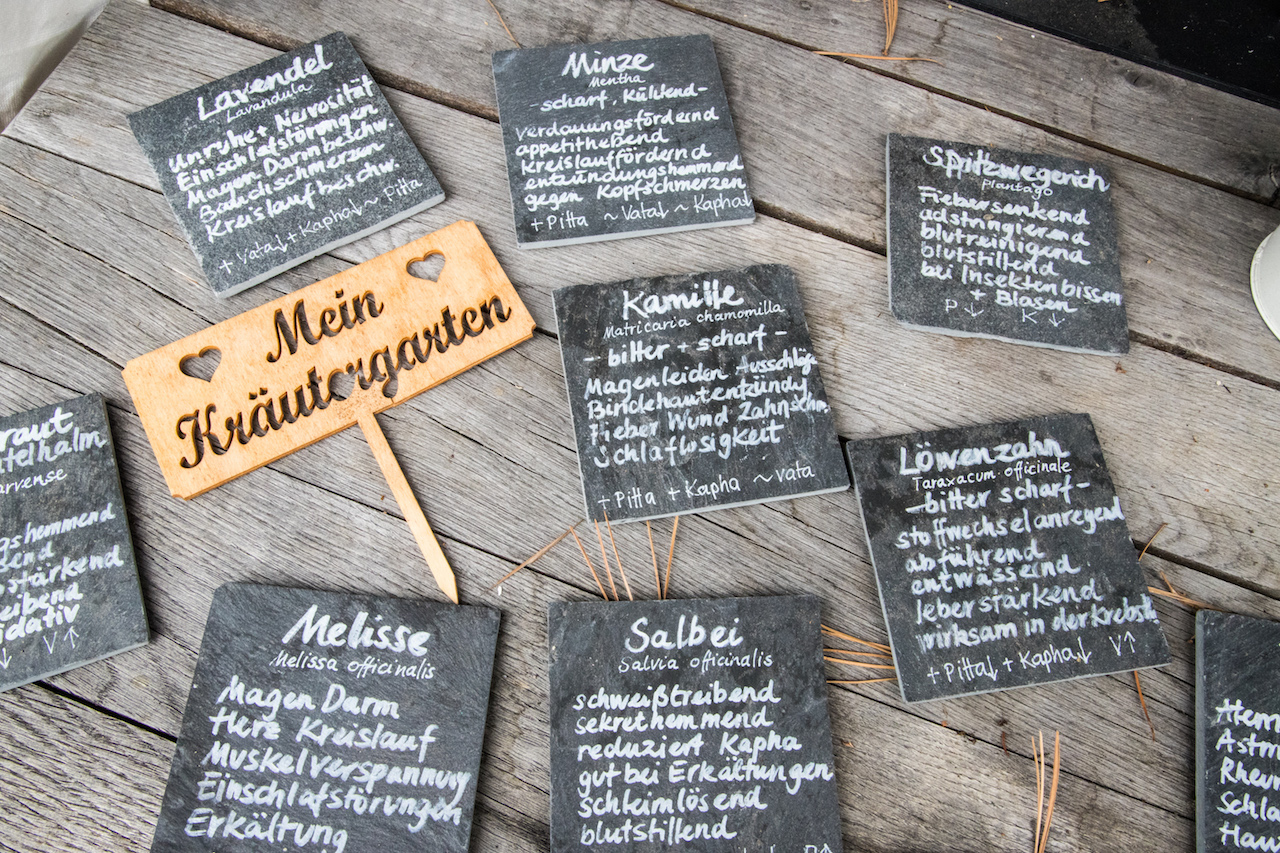 Lavendel
Lavandula
Unruhe + Nervosität
Einschlafstörungen
Magen Darmbeschw.
Bauchschmerzen
Kreislaufbeschw.
+ Vata↓ + Kapha↓ ~ Pitta
Minze
Mentha
- scharf, kühlend -
verdauungsfördernd
appetithebend
kreislauffördernd
entzündungshemmend
gegen Kopfschmerzen
+ Pitta ~ Vata↓ ~ Kapha↓
Spitzwegerich
Plantago
Fiebersenkend
adstringierend
blutreinigend
blutstillend
bei Insektenbissen
+ Blasen
P↓ K↓
Mein
Kräutergarten
Kamille
Matricaria chamomilla
- bitter + scharf -
Magenleiden Ausschläge
Bindehautentzündg
Fieber Wund Zahnschm.
Schlaflosigkeit
+ Pitta + Kapha ~ vata
raut
telhalm
arvense
gshemmend
send
stärkend
eibend
idativ
↓ V↑
Löwenzahn
Taraxacum officinale
- bitter scharf -
stoffwechselanregend
abführend
entwässernd
leberstärkend
wirksam in der krebsth
+ Pitta↓ + Kapha↓ V↑
Melisse
Melissa officinalis
Magen Darm
Herz Kreislauf
Muskelverspannung
Einschlafstörungen
Erkältung
Salbei
Salvia officinalis
schweißtreibend
sekrethemmend
reduziert Kapha
gut bei Erkältungen
schleimlösend
blutstillend
Atem
Astm
Rheum
Schla
Hau